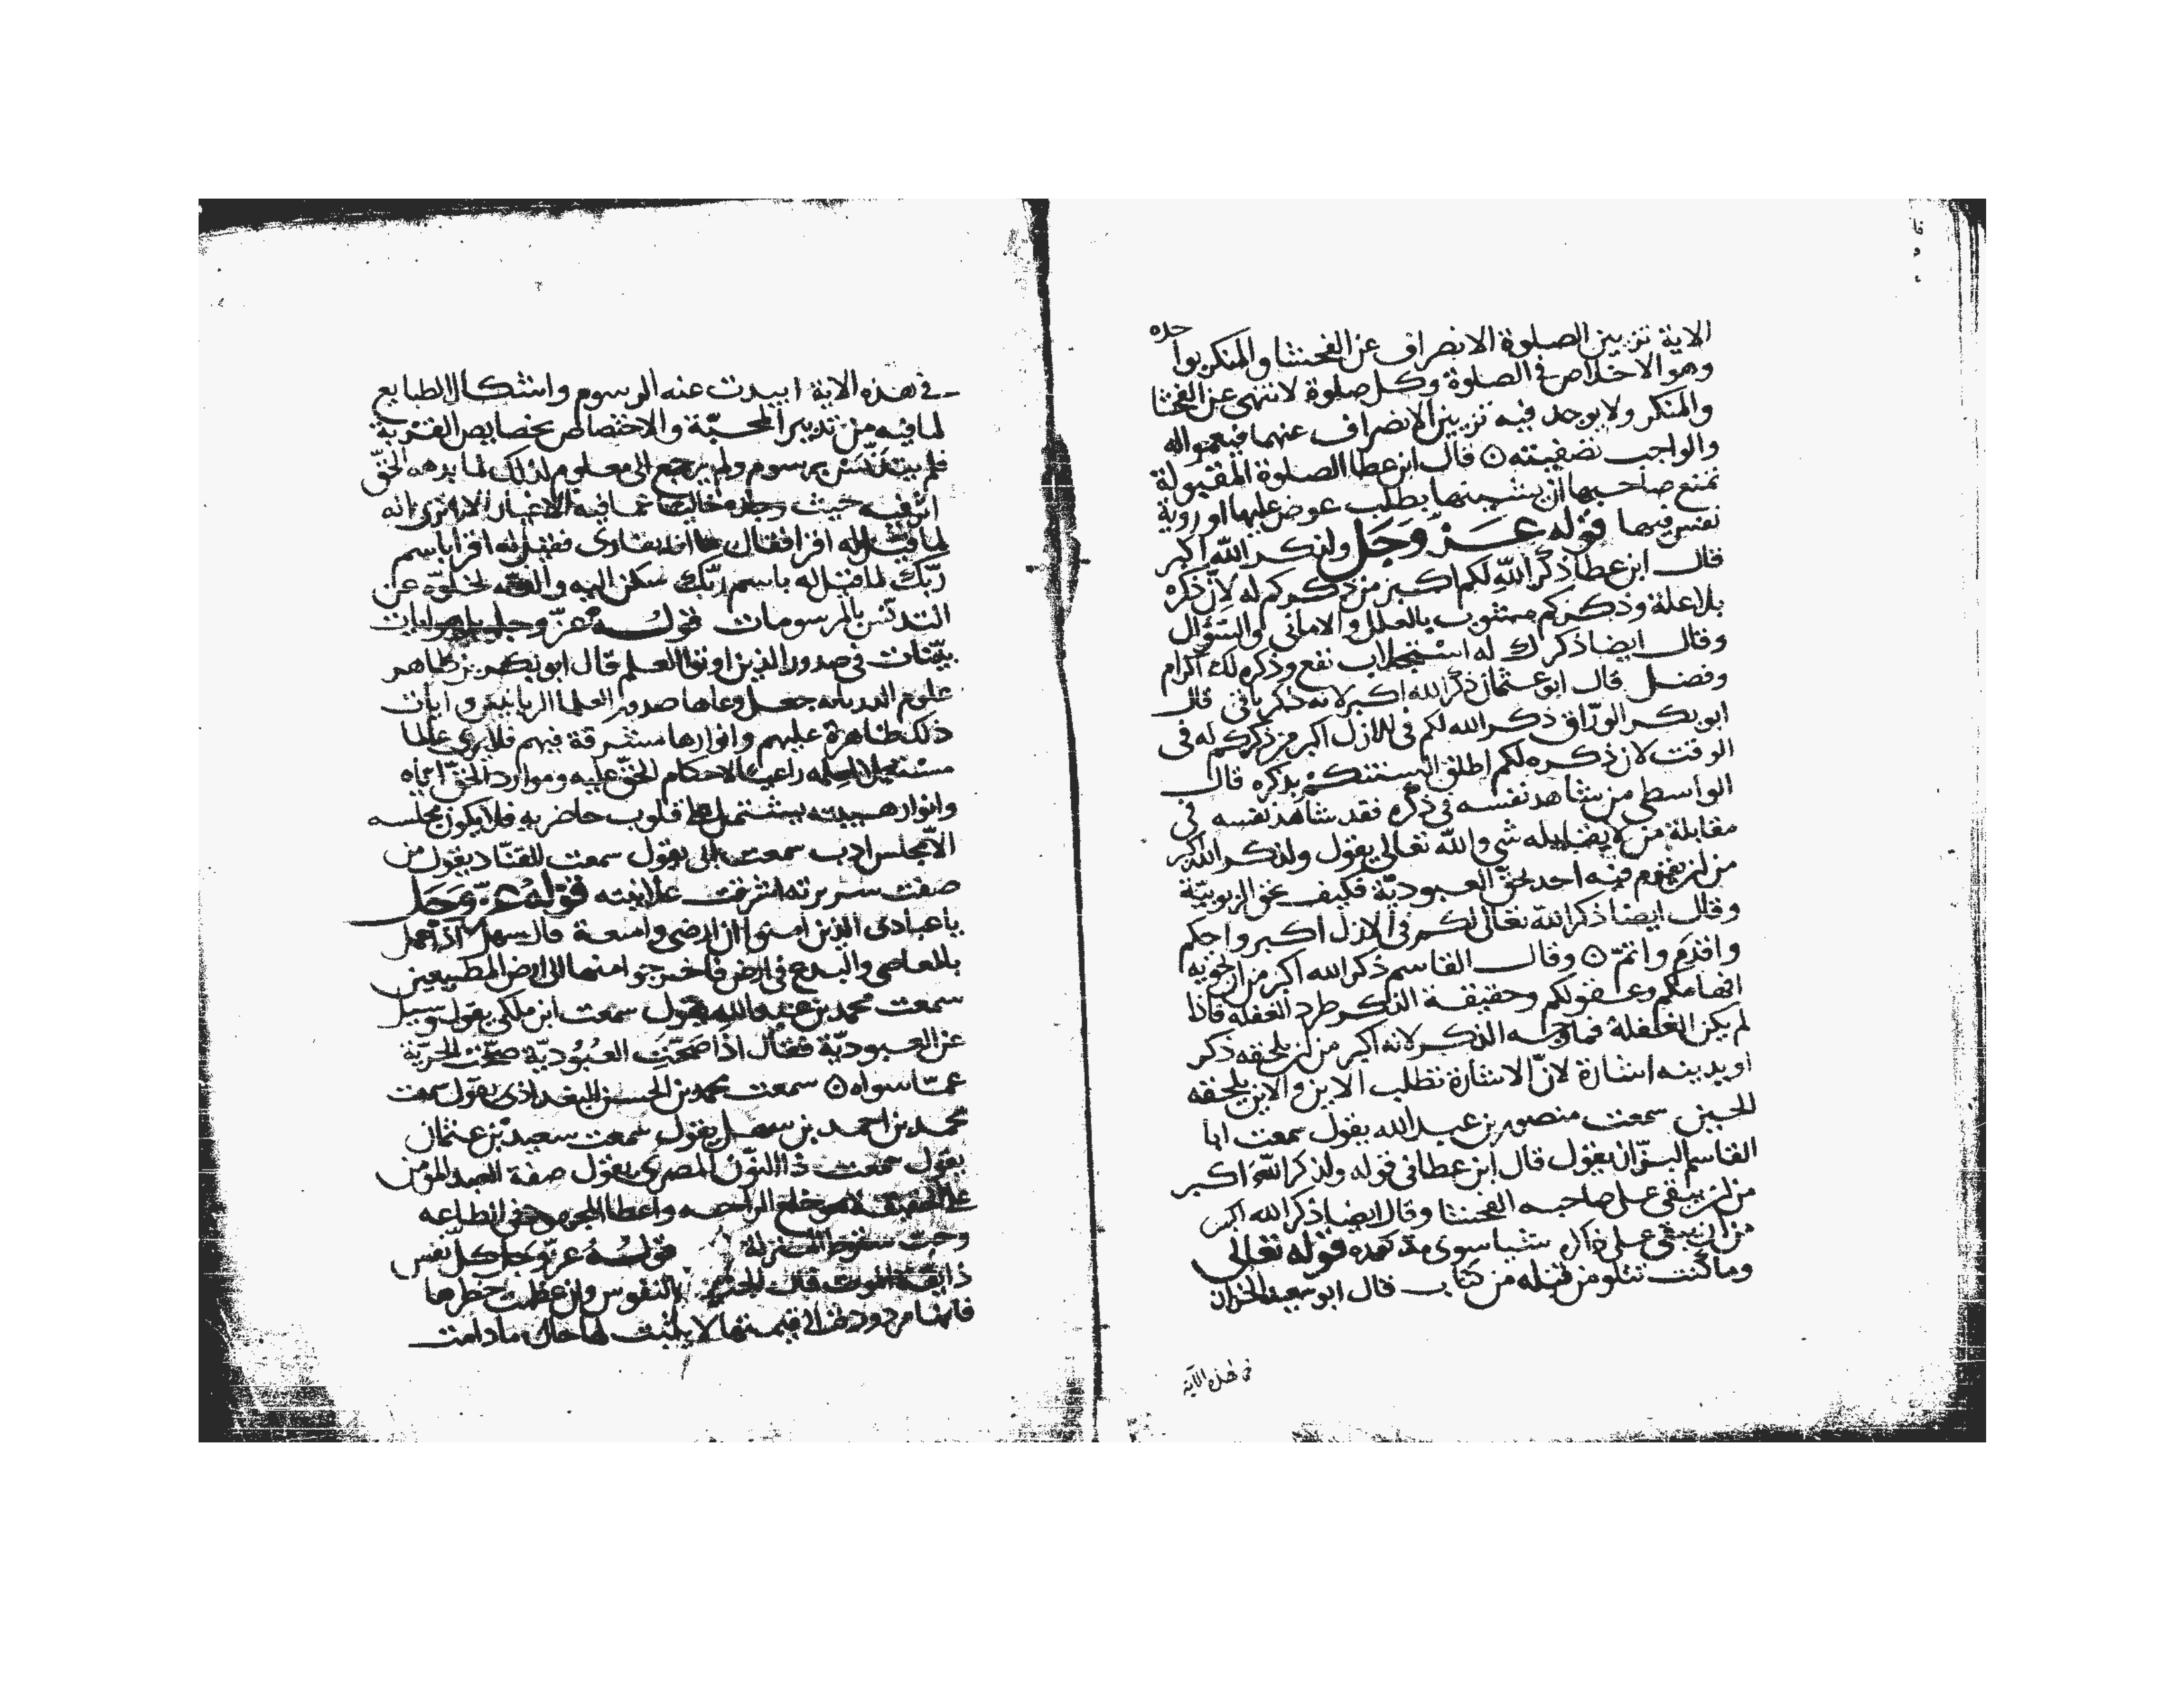 الاية تزيين الصلوة الانصراف عن الفحشا والمنكر بواحده
وهو الاخلاص في الصلوة وكل صلوة لا تنتهى عن الفحشا
والمنكر ولا يوجد فيه تزيين الانصراف عنهما
والواجب تصفيته ۞ قال ابن عطا الصلوة المقبولة
تمنع صاحبها ان يشينها بطلب عوض عليها او روية
نفس فيها قوله عز وجل ولذكر الله اكبر
قال ابن عطا ذكر الله لكم اكبر من ذكركم له لان ذكره
بلا علة وذكركم مشوب بالعلل والاماني والسؤال
وقال ايضا ذكرك له استجلاب نفع وذكره لك اكرام
وفضل قال ابو عثمان ذكر الله اكبر لانه ذكر باقى قال
ابو بكر الورّاق ذكر الله لكم في الازل اكبر من ذكركم له في
الوقت لان ذكره لكم اطلق السنتكم بذكره قال
الواسطي من شاهد نفسه في ذكره فقد شاهد نفسه في
مقابلة من لا يقابله شي والله تعالى يقول ولذكر الله اكبر
من ان يقوم فيه احد بحق العبوديّة فكيف بحق الربوبيّة
وقال ايضا ذكر الله تعالى لكم في الازل اكبر واحكم
واقدم واتمّ ۞ وقال القاسم ذكر الله اكبر من ان تحويه
افهامكم وعقولكم وحقيقة الذكر طرد الغفلة فاذا
لم يكن الغفلة فما وجه الذكر لانه اكبر من ان يلحقه ذكر
او يدينه اشارة لانّ الاشارة تطلب الاين والاين يلحقه
الحين سمعت منصور بن عبد الله يقول سمعت ابا
القاسم البزّاز يقول قال ابن عطا في قوله ولذكر الله اكبر
من ان يبقى على صاحبه الفحشا وقال ايضا ذكر الله اكبر
من ان يبقى على ذاكر شيا سوى قوله تعالى
وما كنت تتلو من قبله من كتاب قال ابو سعيد الخراز
في هذه الآية
في هذه الاية ابيدت عنه الرسوم واشكال الطبايع
لما فيه من تدبير المحبّة والاختصاص بخصايص القربة
فلم يتدنّس برسوم ولم يرجع الى معلوم لذلك لما بدهه الحقّ
حيث وجده خاليا عما فيه الاغيار الا ترى انه
لما قيل له اقرا فقال ما انا بقارى فقيل له اقرا باسم
ربّك لما قيل له باسم ربّك سكن اليه والفه لخلوّه عن
التدنّس بالمرسومات قوله عزّ وجل بل هو ايات
بيّنات في صدور الذين اوتوا العلم قال ابو بكر بن طاهر
علوم جعل وعاها صدور العلما الربانيين و ايات
ذلك ظاهرة عليهم وانوارها مشرقة فيهم فلا يرى عالما
راعيا لاحكام الحقّ عليه وموارد الحقّ ايّاه
وانوار هيبته يشتمل على قلوب حاضريه فلا يكون مجلسه
الّا مجلس ادب سمعت ابى يقول سمعت القنّاد يقول من
صفت سريرته اشرقت علانيته قوله عزّ وجل
يا عبادى الذين امنوا ان ارضى واسعة قال سهل اذا عمل
بالمعاصى والبدع في ارض فاخرجوا منها الى ارض المطيعين
سمعت محمد بن عبد الله يقول سمعت ابن ملكى يقول وسيل
عن العبوديّة فقال اذا صحّت العبوديّة صحّت الحريّة
عمّا سواه ۞ سمعت محمد بن الحسن البغداذى يقول سمعت
محمد بن احمد بن سهل يقول سمعت سعيد بن عثمان
يقول سمعت ذا النون المصرى يقول صفة العبد المومن
خلع الراحه واعطا المجهود في الطاعه
وحب سقوط المنزلة قوله عزّ وجل كل نفس
ذايقة الموت قال النفوس وان عظمت خطرها
فانها لا يلتفت لها حال ما دامت